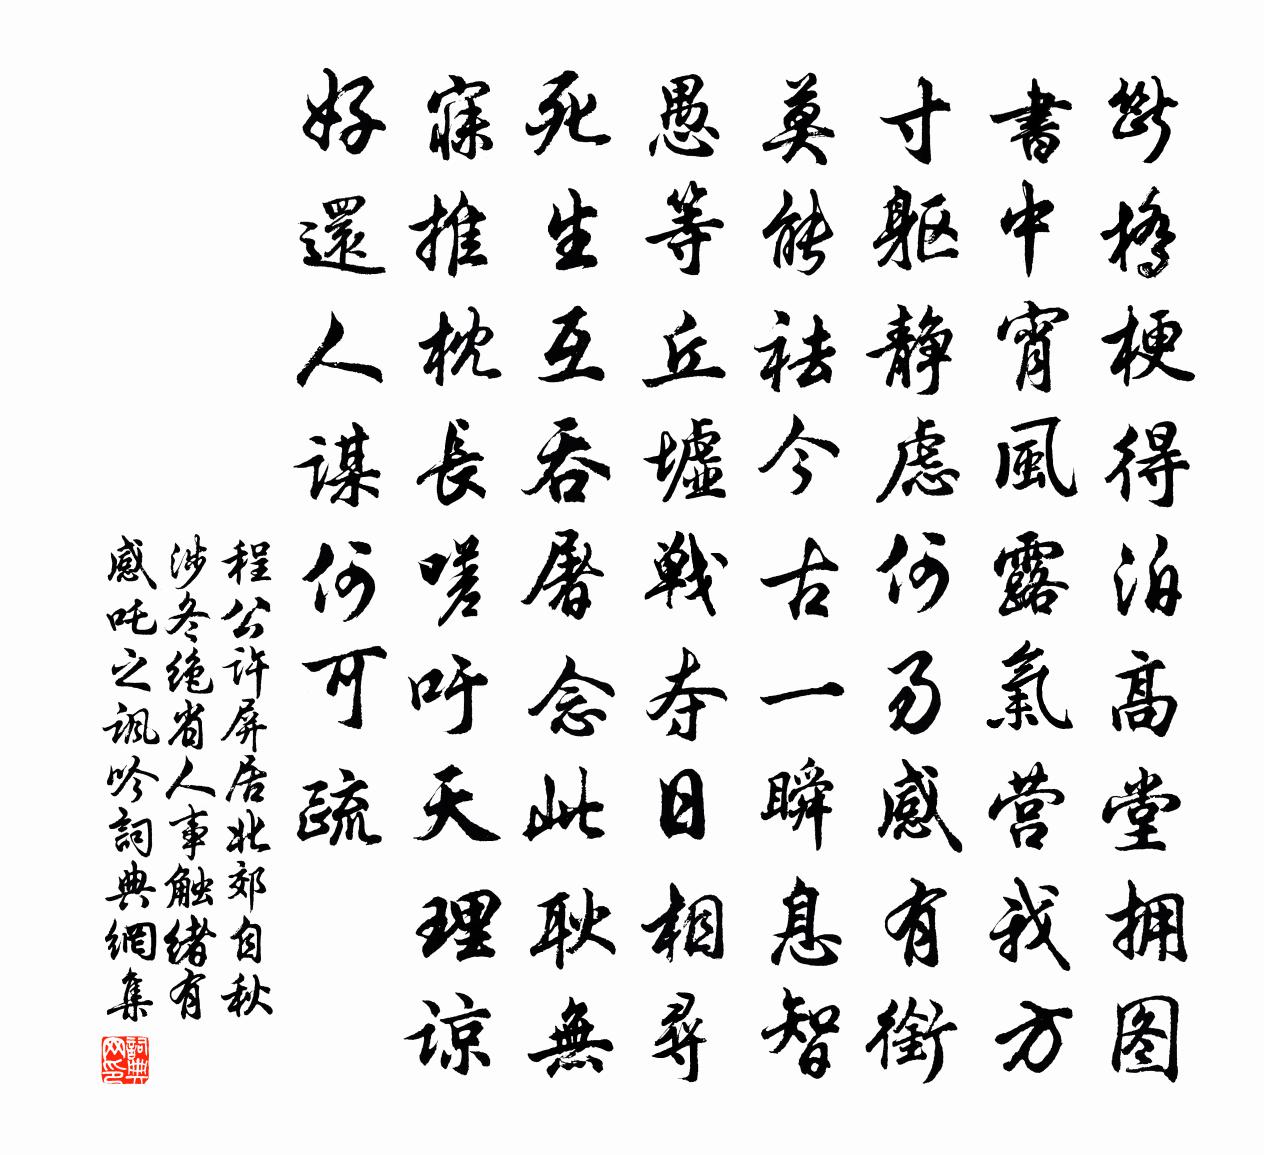 斷橋梗得泊高堂拥图
書中宵風露氣营我方
寸躯静慮何曷感有銜
莫能祛今古一瞬息智
愚等丘墟戰夺日相尋
死生互吞屠念此耿無
寐推枕長嗟吁天理谅
好還人謀何可疏
程公许屏居北郊自秋
涉冬绝省人事触绪有
感吒之讽吟詞典網集
詞典网印